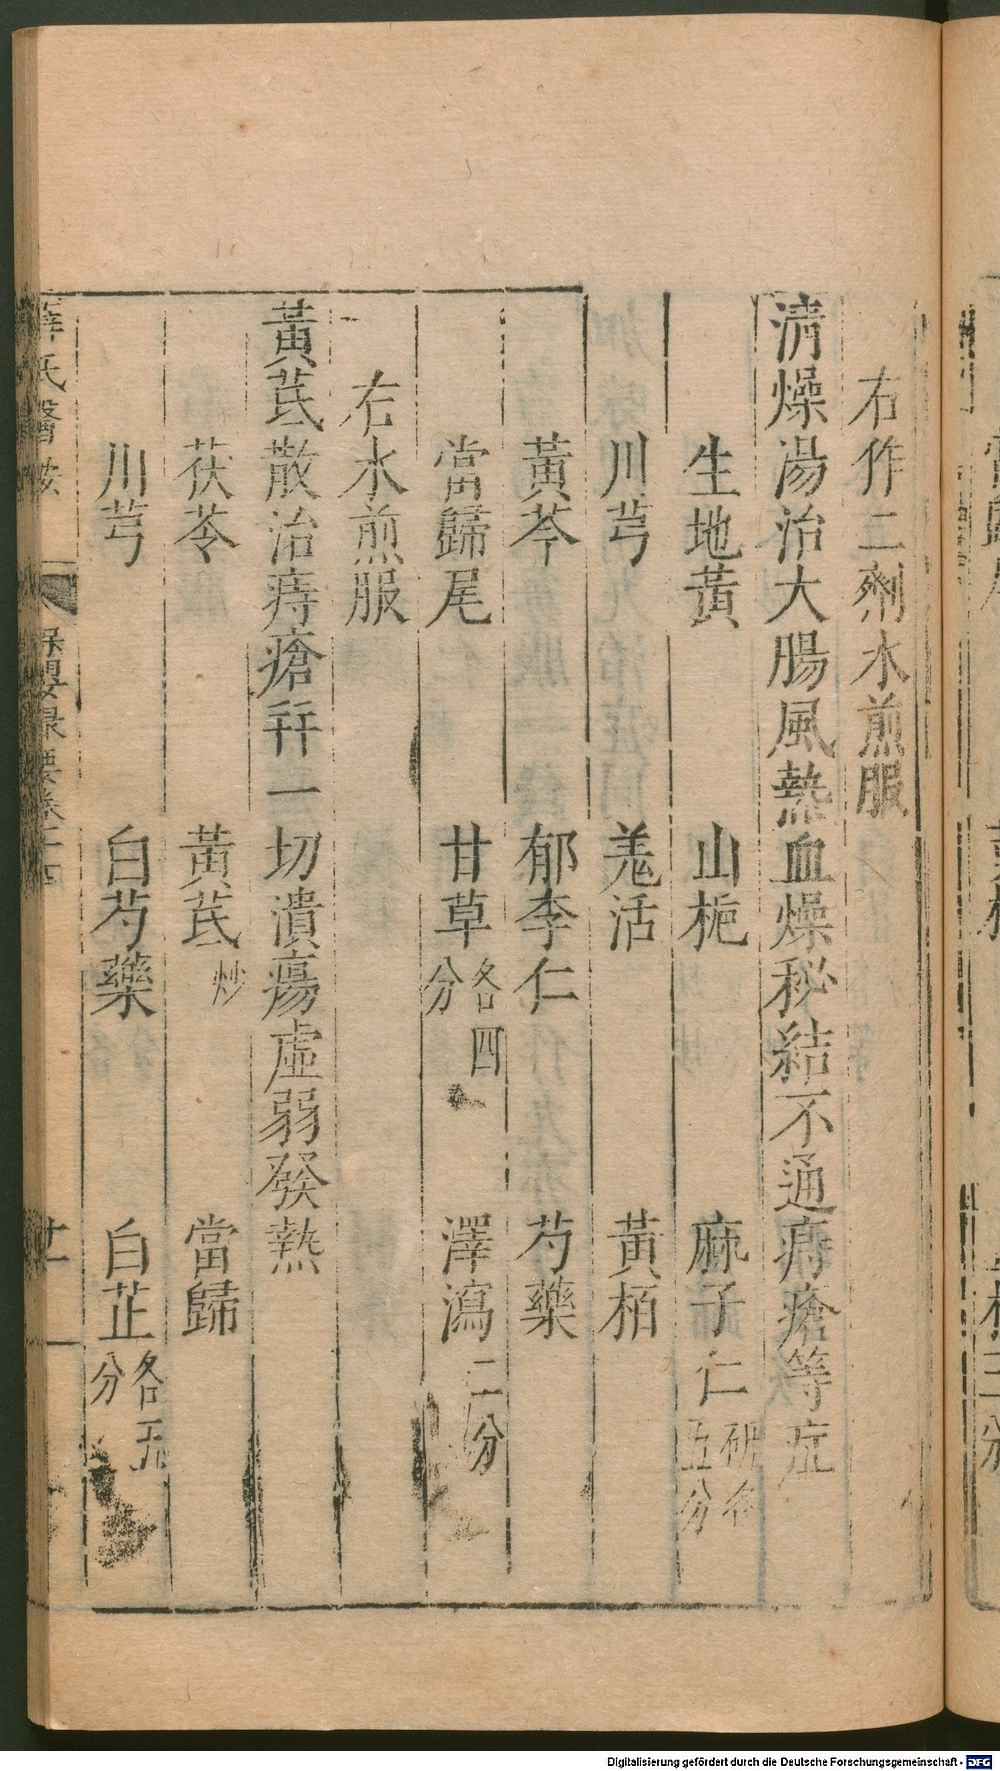 右作二劑水煎服
清燥湯治大腸風熱血燥秘結不通痔瘡等症
生地黃 山梔 麻子仁研各五分
川芎 羗活 黃栢
黃芩 郁李仁 芍藥
當歸尾 甘草各四分 澤瀉二分
右水煎服
黃芪散治痔瘡幷一切潰瘍虛弱發熱
茯苓 黃芪炒 當歸
川芎 白芍藥 白芷各五分
薛氏醫按 保嬰撮要卷十四 廿一
Digitalisierung gefördert durch die Deutsche Forschungsgemeinschaft - DFG